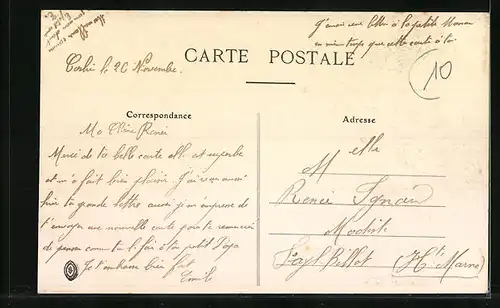 J'envoie une lettre à la petite Maman
en même temps que cette carte à toi
CARTE POSTALE
10
le 20 Novembre.
Correspondance
Ma Chère Renée
Merci de ta belle carte elle est superbe
et m'a fait bien plaisir. J'ai reçu aussi
ta grande lettre aussi je m'empresse de
t'envoyer une nouvelle carte pour te remercier
de penser comme tu le fais à ton petit Papa
Je t'embrasse bien fort
Emile
Adresse
Melle
Renée
Modiste
Fayl Billot (Hte Marne)